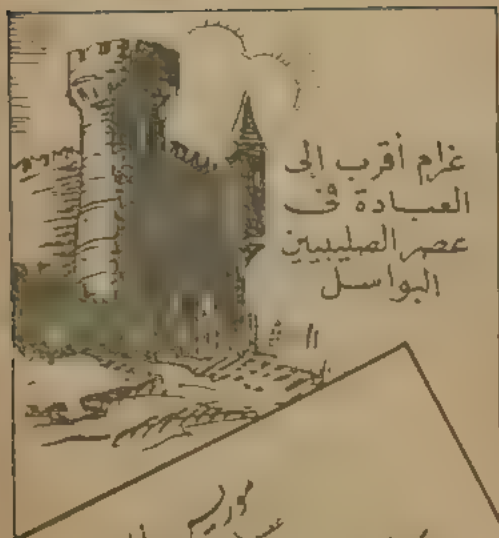 غرام أقرب إلى
العبادة في
عصر الصليبيين
البواسل